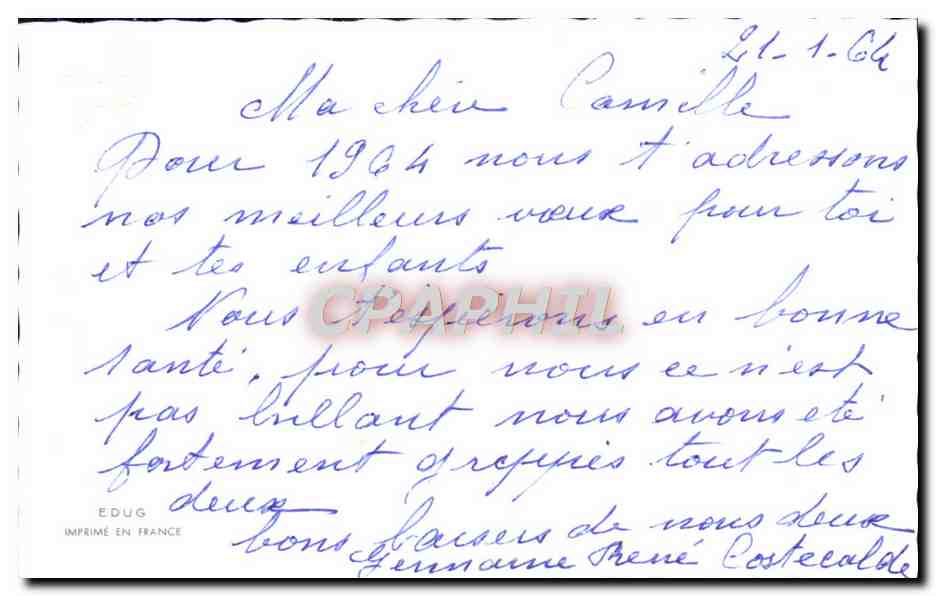 21-1-64
Ma chère Camille
Pour 1964 nous t'adressons
nos meilleurs vœux pour toi
et tes enfants
Nous t'espérons en bonne
santé, pour nous ce n'est
pas brillant nous avons été
fortement grippés tout les
deux
bons baisers de nous deux
Germaine René Costecalde
CPAPHIL
EDUG
IMPRIMÉ EN FRANCE